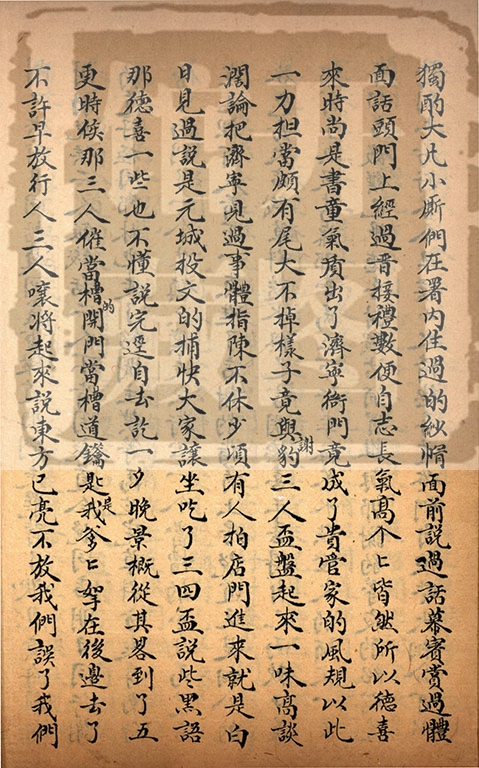 獨酌大凡小厮們在署內住過的紗帽面前說過話幕賓賞過體
面話頭門上經過晋接禮數便自志長氣高个匕皆然所以德喜
來時尚是書童氣質出了濟寧衙門竟成了貴管家的風規以此
一力担當頗有尾大不掉樣子竟與謝豹三人盃盤起來一味高談
濶論把濟寧見過事體指陳不休少頃有人拍店門進來就是白
日見過說是元城投文的捕快大家讓坐吃了三四盃說些黑語
那德喜一些也不懂說完還自去訖一夕晚景概從其畧到了五
更時候那三人催當槽的開門當槽道鑰匙是我爹匕拏在後邊去了
不許早放行人三人嚷將起來說東方已亮不放我們誤了我們